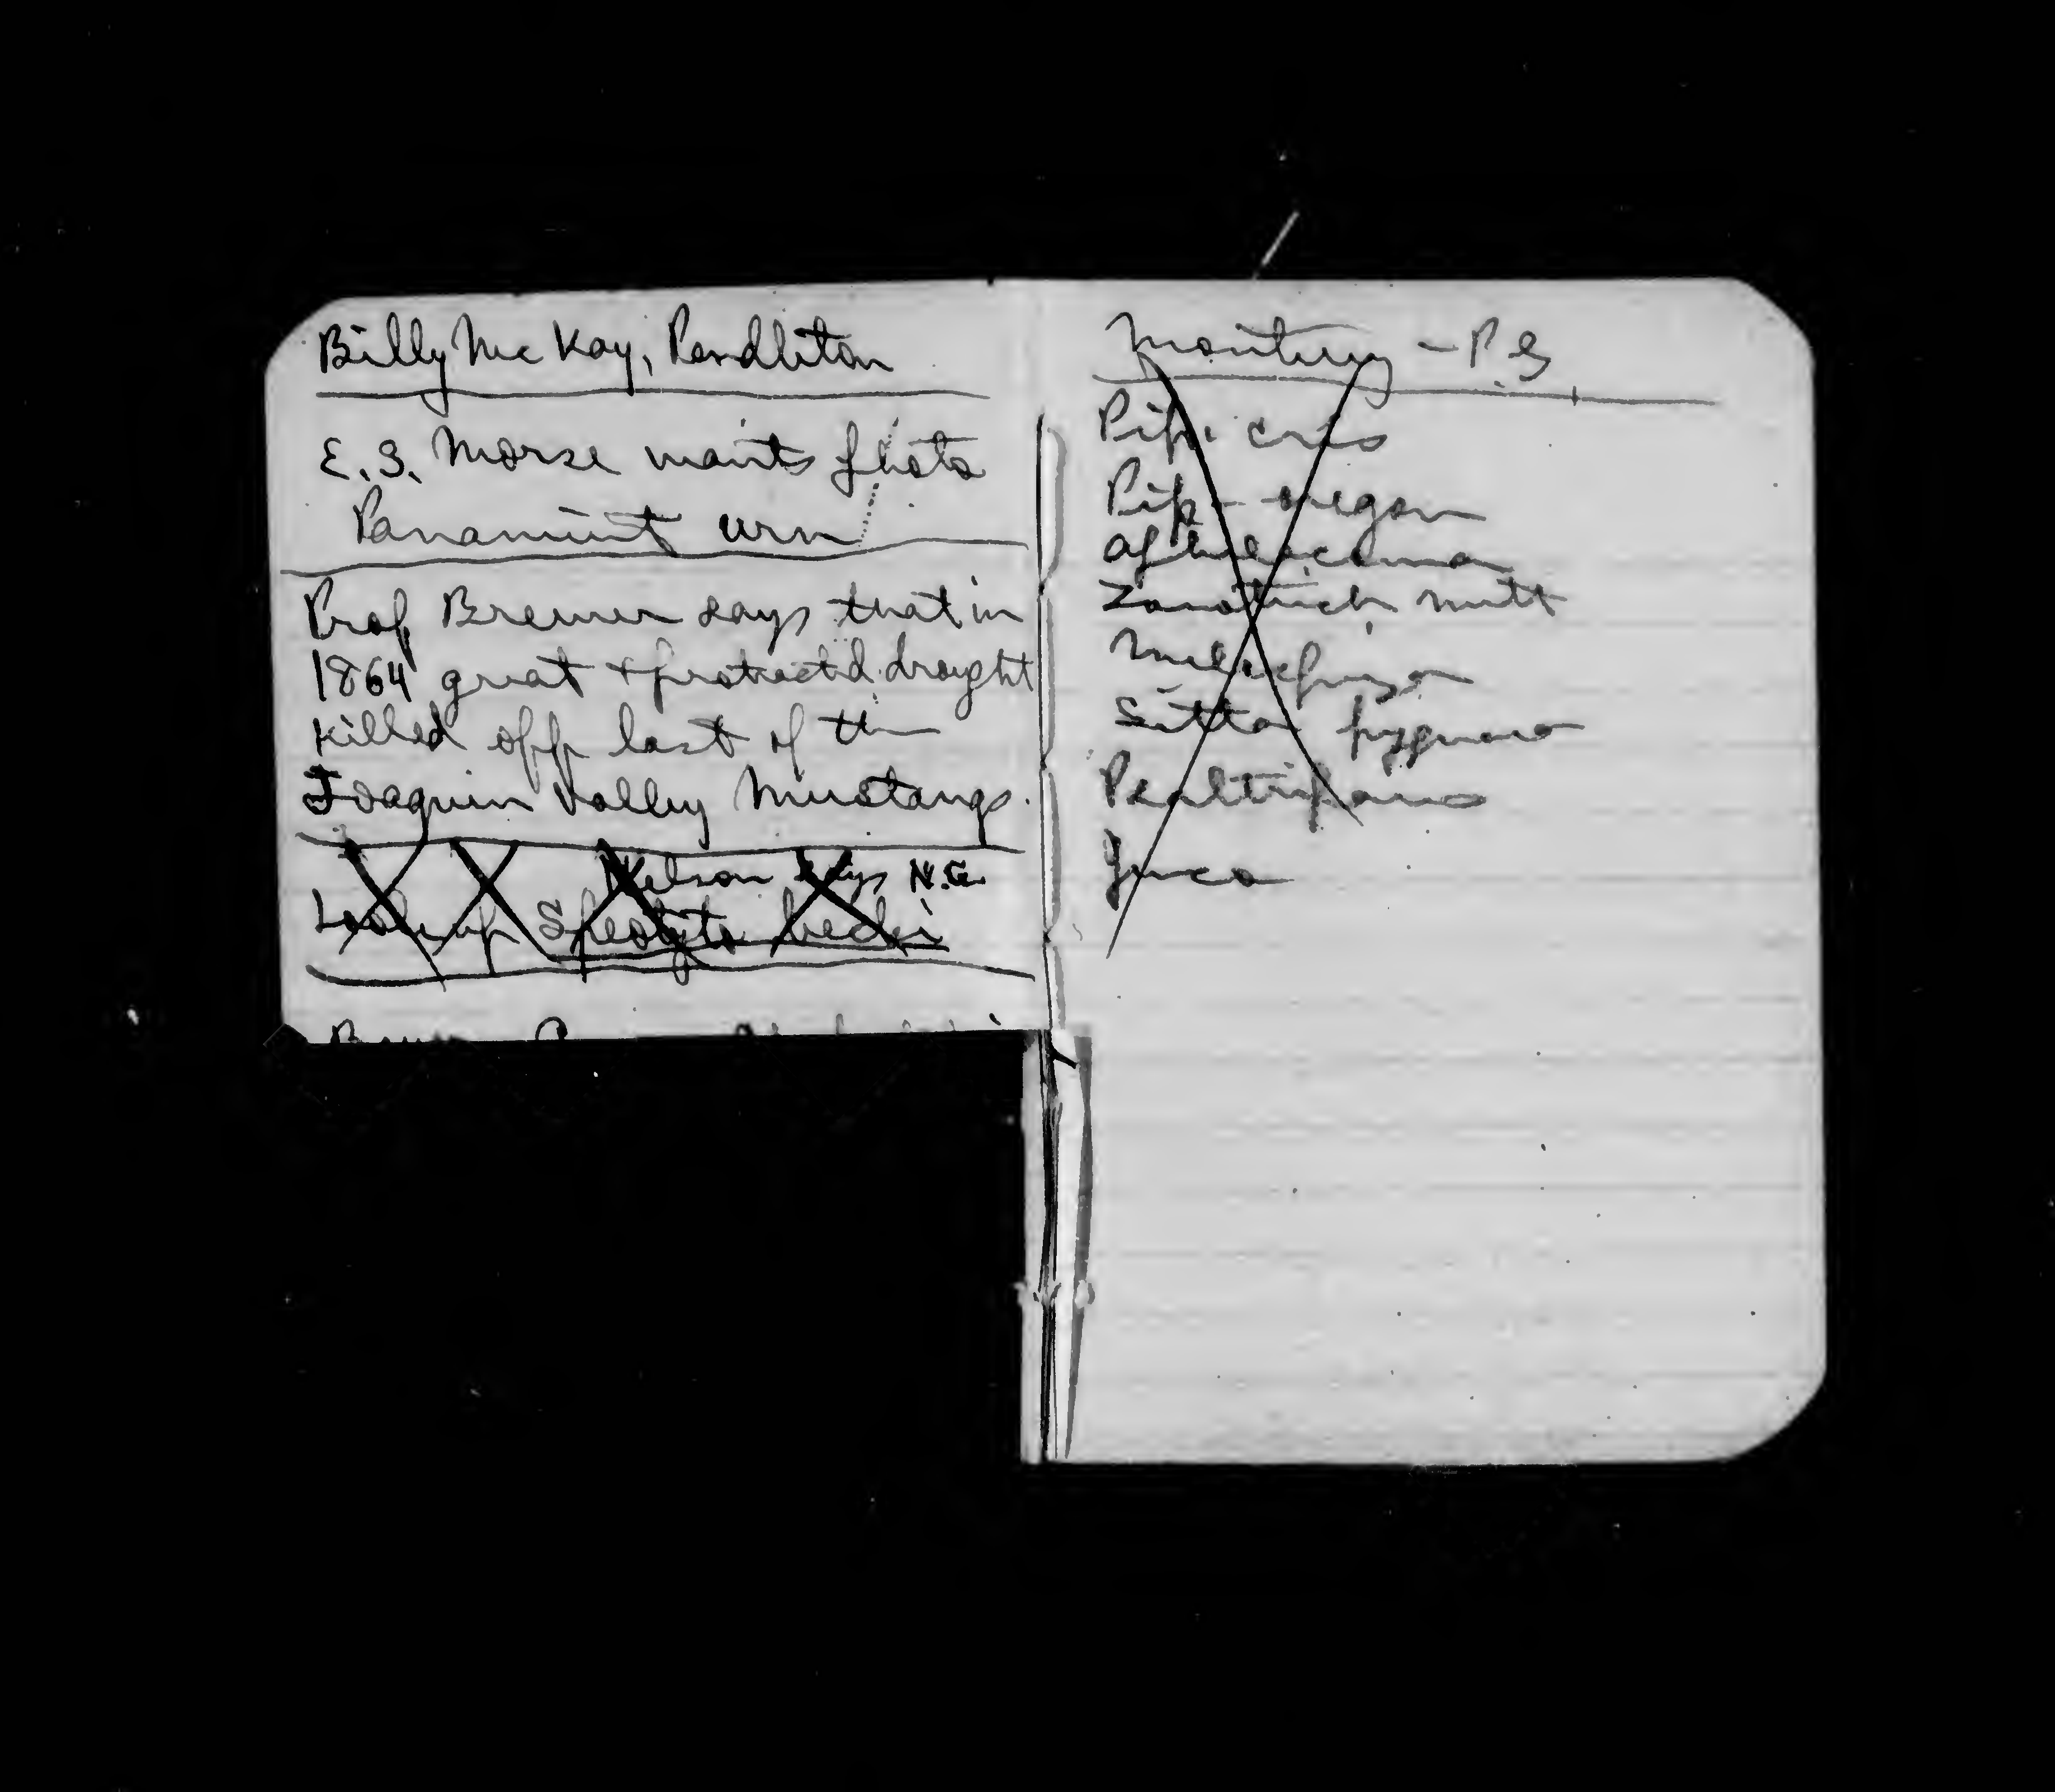 Billy McKay, Pendleton
E. S. Morse wants photo
Panamint urn
Prof Brewer says that in
1864 great & protracted drought
killed off last of the
Joaquin Valley Mustangs.
Nelson says N.G.
Look up Speotyto becki
Monterey - P.G.
Pip. cris
Pip - oregon
Aphelocoma
Zonotrich nutt
Melospiza
Sitta pygmaea
Psaltriparus
Junco